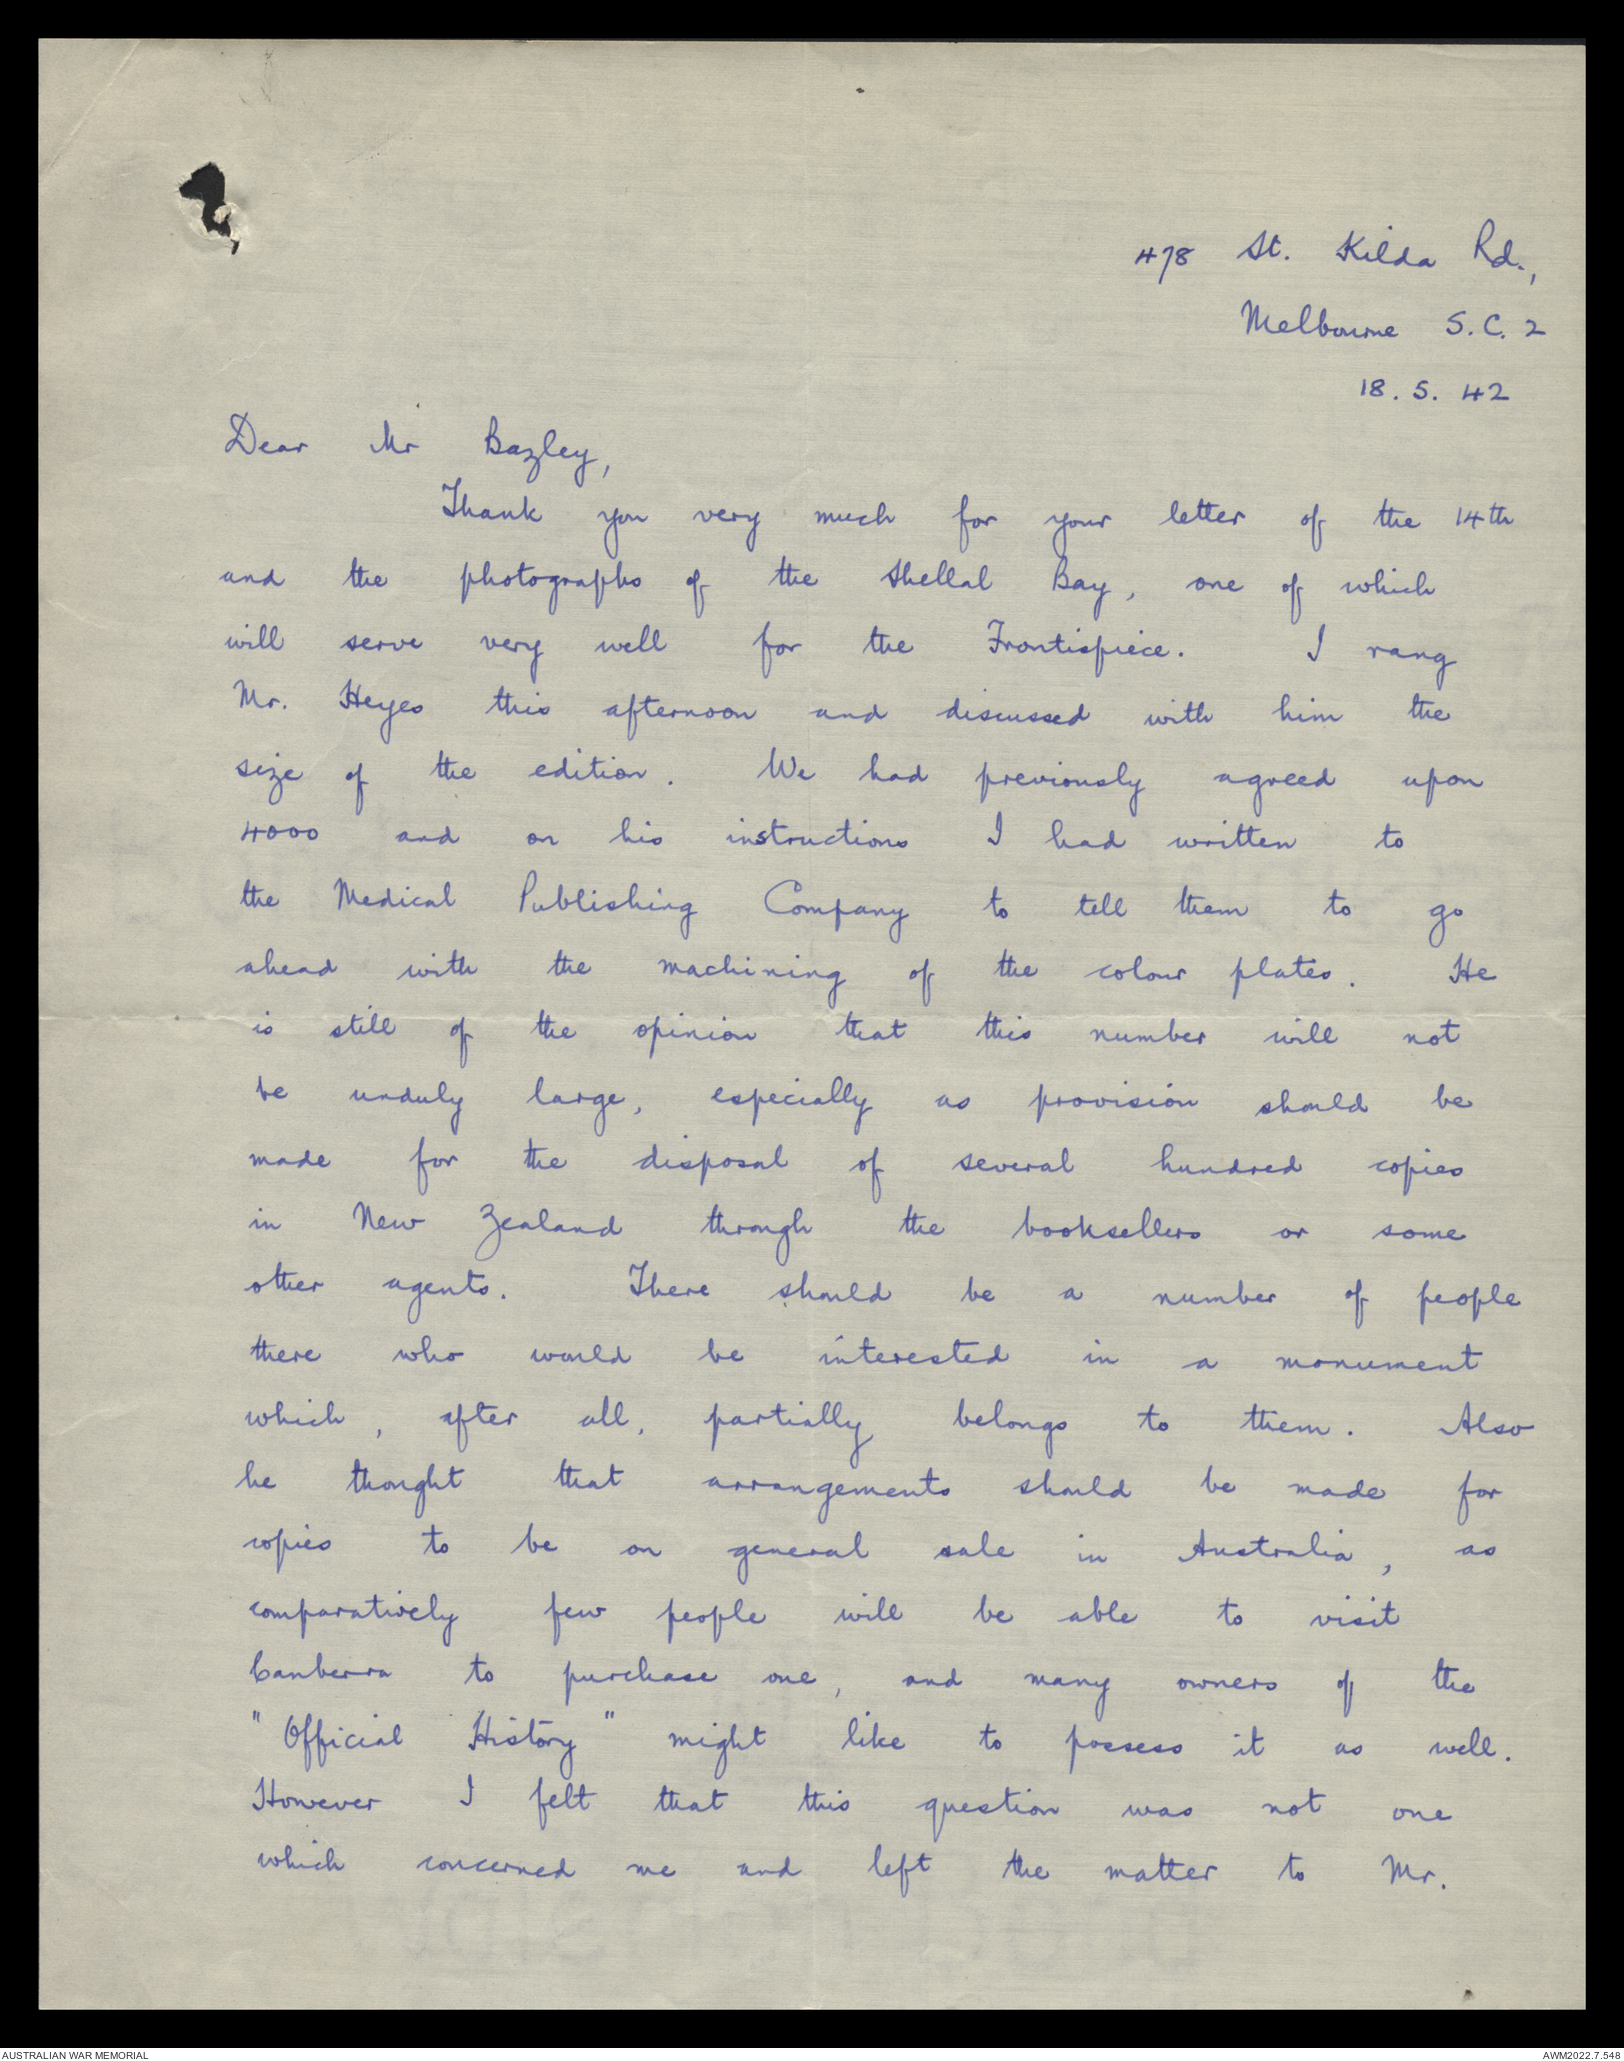 478 St. Kilda Rd.,
Melbourne S.C.2
18.5.42
Dear Mr Bazley,
Thank you very much for your letter of the 14th
and the photographs of the Shellal Bay, one of which
will serve very well for the Frontispiece. I rang
Mr. Heyes this afternoon and discussed with him the
size of the edition. We had previously agreed upon
4000 and on his instructions I had written to
the Medical Publishing Company to tell them to go
ahead with the machining of the colour plates. He
is still of the opinion that this number will not
be unduly large, especially as provision should be
made for the disposal of several hundred copies
in New Zealand through the booksellers or some
other agents. There should be a number of people
there who would be interested in a monument
which, after all, partially belongs to them. Also
he thought that arrangements should be made for
copies to be on general sale in Australia, as
comparatively few people will be able to visit
Canberra to purchase one, and many owners of the
"Official History" might like to possess it as well.
However I felt that this question was not one
which concerned me and left the matter to Mr.
AUSTRALIAN WAR MEMORIAL
AWM2022.7.548